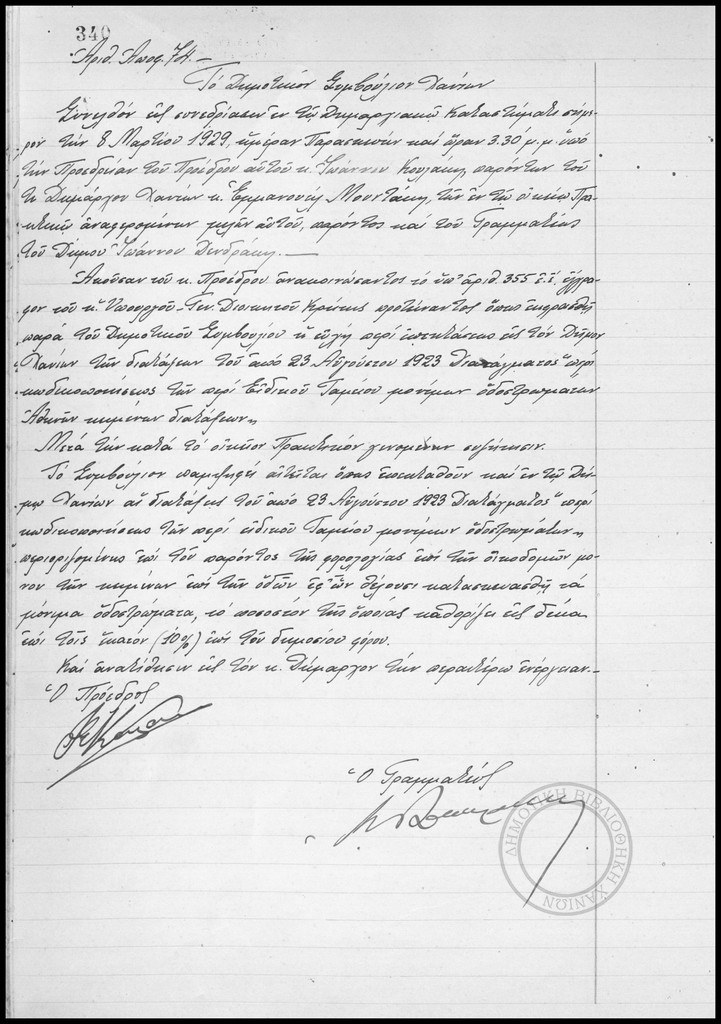 340
Ἀριθ. Ἀποφ. 74.—
Τὸ Δημοτικὸν Συμβούλιον Χανίων
Συνελθὸν εἰς συνεδρίασιν ἐν τῷ Δημαρχιακῷ Καταστήματι σήμε-
ρον τὴν 8 Μαρτίου 1929, ἡμέραν Παρασκευὴν καὶ ὥραν 3.30' μ.μ. ὑπὸ
τὴν Προεδρίαν τοῦ Προέδρου αὐτοῦ κ. Ἰωάννου Κουλάκη, παρόντων τοῦ
κ. Δημάρχου Χανίων κ. Ἐμμανουὴλ Μουντάκη, τῶν ἐν τῷ οἰκείῳ Πρα-
κτικῷ ἀναφερομένων μελῶν αὐτοῦ, παρόντος καὶ τοῦ Γραμματέως
τοῦ Δήμου Ἰωάννου Δενδράκη.—
Ἀκοῦσαν τοῦ κ. Προέδρου ἀνακοινώσαντος τὸ ὑπ' ἀριθ. 355 ἐ.ἔ. ἔγγρα-
φον τοῦ κ. Ὑπουργοῦ - Γεν. Διοικητοῦ Κρήτης προτείναντος ὅπως ἐκφρασθῇ
παρὰ τοῦ Δημοτικοῦ Συμβουλίου ἡ εὐχὴ περὶ ἐπεκτάσεως εἰς τὸν Δῆμον
Χανίων τῶν διατάξεων τοῦ ἀπὸ 23 Αὐγούστου 1923 Διατάγματος "περὶ
κωδικοποιήσεως τῶν περὶ Εἰδικοῦ Ταμείου μονίμων ὁδοστρωμάτων
Ἀθηνῶν κειμένων διατάξεων"
Μετὰ τὴν κατὰ τὸ οἰκεῖον Πρακτικὸν γενομένην συζήτησιν.
Τὸ Συμβούλιον παμψηφεὶ αἰτεῖται ὅπως ἐπεκταθοῦν καὶ ἐν τῷ Δή-
μῳ Χανίων αἱ διατάξεις τοῦ ἀπὸ 23 Αὐγούστου 1923 Διατάγματος "περὶ
κωδικοποιήσεως τῶν περὶ εἰδικοῦ Ταμείου μονίμων ὁδοστρωμάτων"
περιοριζομένης ἐπὶ τοῦ παρόντος τῆς φορολογίας ἐπὶ τῶν οἰκοδομῶν μό-
νον τῶν κειμένων ἐπὶ τῶν ὁδῶν ἐφ' ὧν θέλουσι κατασκευασθῆ τὰ
μόνιμα ὁδοστρώματα, τὸ ποσοστὸν τῆς ὁποίας καθορίζει εἰς δέκα
ἐπὶ τοῖς ἑκατὸν (10%) ἐπὶ τοῦ δημοσίου φόρου.
Καὶ ἀνατίθησιν εἰς τὸν κ. Δήμαρχον τὴν περαιτέρω ἐνέργειαν.—
Ὁ Πρόεδρος
Ὁ Γραμματεὺς
ΔΗΜΟΤΙΚΗ ΒΙΒΛΙΟΘΗΚΗ ΧΑΝΙΩΝ